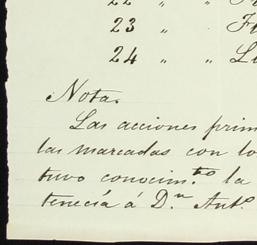 22 " "
23 " "
24 " "
Nota.
Las acciones prim
las marcadas con lo
tuvo conocim.to la
tenecía á D.n Ant.o